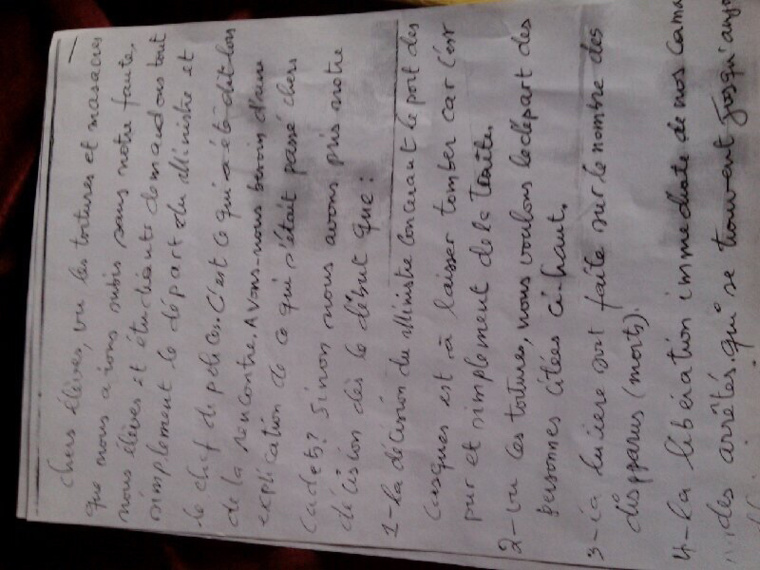 chers élèves, vu les tortures et masacres
que nous aions subis sans notre faute,
nous élèves et étudiants demandons tout
simplement le départ du Ministre et
le chef de police. C'est ce qui a été dit lors
de la rencontre. Avons-nous besoin d'une
explication de ce qui s'était passé chers
Cadets? Sinon nous avons pris notre
décision dès le début que:
1-La décision du Ministre concerant le port des
casques est à laisser tomber car c'est
pur et simplement de la Traite.
2-vu les tortures, nous voulons le départ des
personnes citées ci haut.
3- la lumière soit faite sur le nombre des
dispparus (morts).
4-La libération immediate de nos Cama
des arrêtés qui se trouvant jusqu'aujo